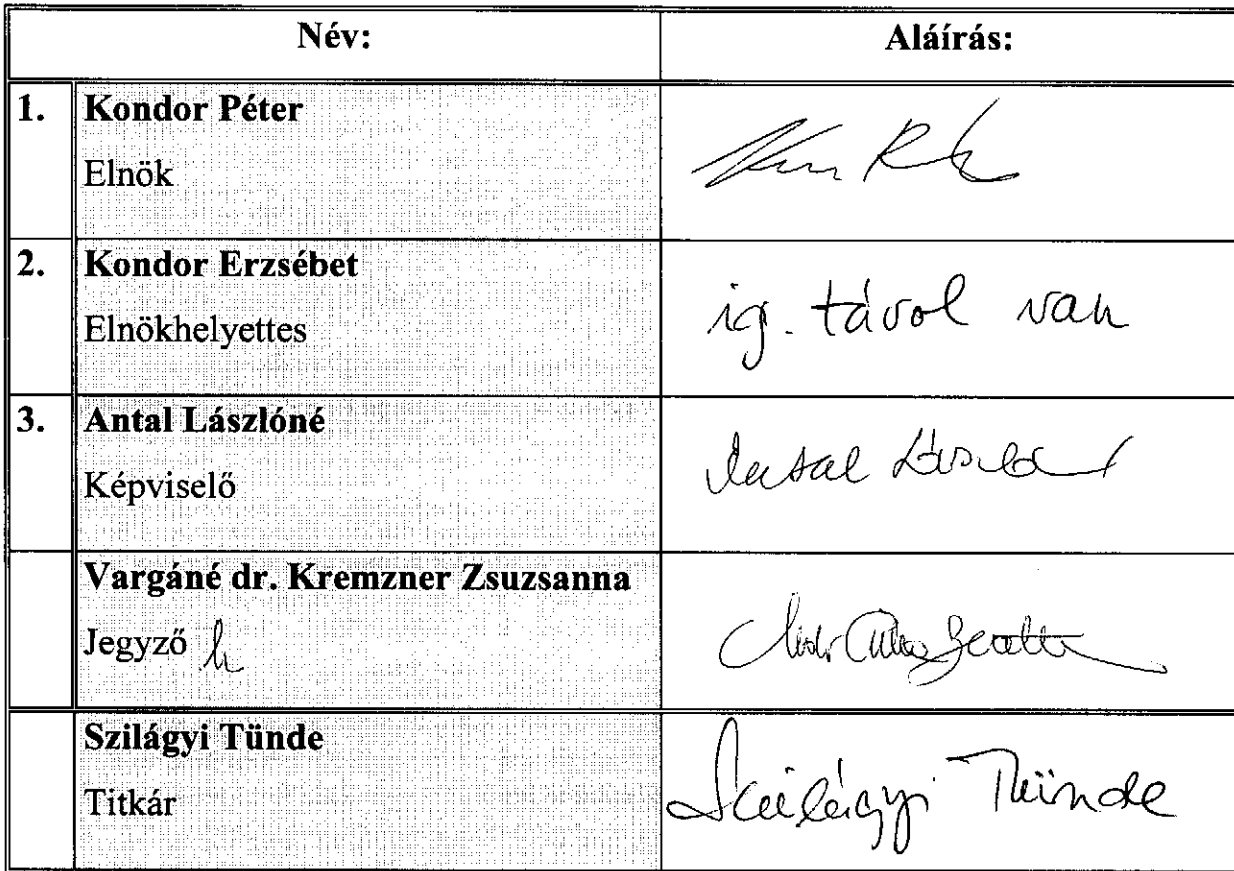 Név: Aláírás:
1. Kondor Péter
Elnök
2. Kondor Erzsébet
Elnökhelyettes
ig. távol van
3. Antal Lászlóné
Képviselő
Antal Lászlóné
Vargáné dr. Kremzner Zsuzsanna
Jegyző h
Szilágyi Tünde
Titkár
Szilágyi Tünde